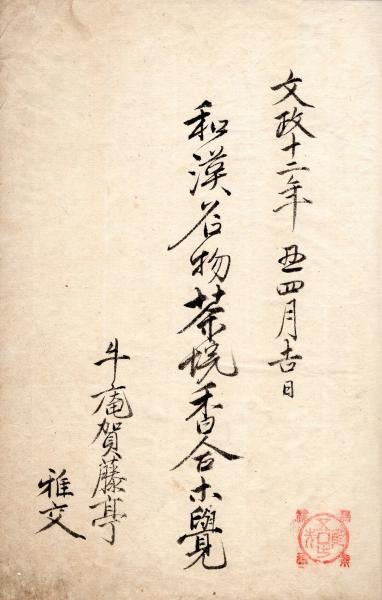 文政十二年 丑四月吉日
和漢名物茶埦香合等覺
牛庵賀藤亭
雅交